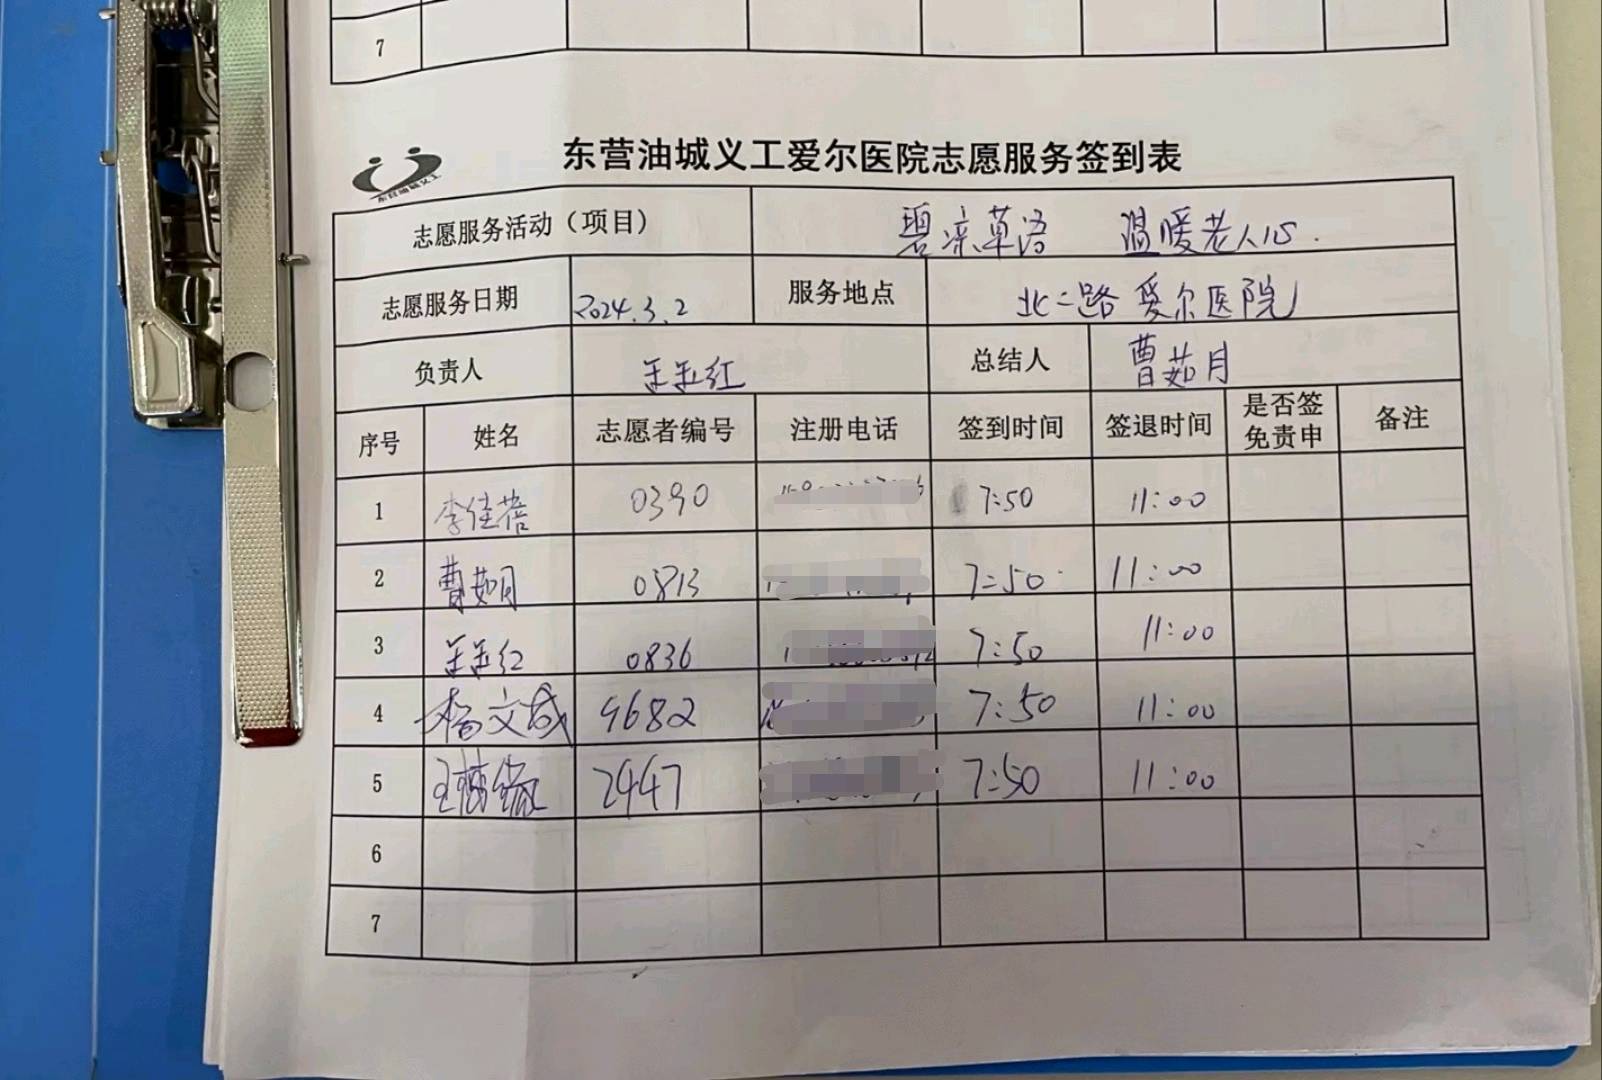 7
东营油城义工
东营油城义工爱尔医院志愿服务签到表
志愿服务活动（项目） 碧凉草语 温暖老人心.
志愿服务日期 2024.3.2 服务地点 北二路 爱尔医院
负责人 王玉红 总结人 曹茹月
序号 姓名 志愿者编号 注册电话 签到时间 签退时间 是否签免责申 备注
1 李佳蓓 0390 7:50 11:00
2 曹茹月 0813 7:50 11:00
3 王玉红 0836 7:50 11:00
4 杨文成 9682 7:50 11:00
5 王 2447 7:50 11:00
6
7